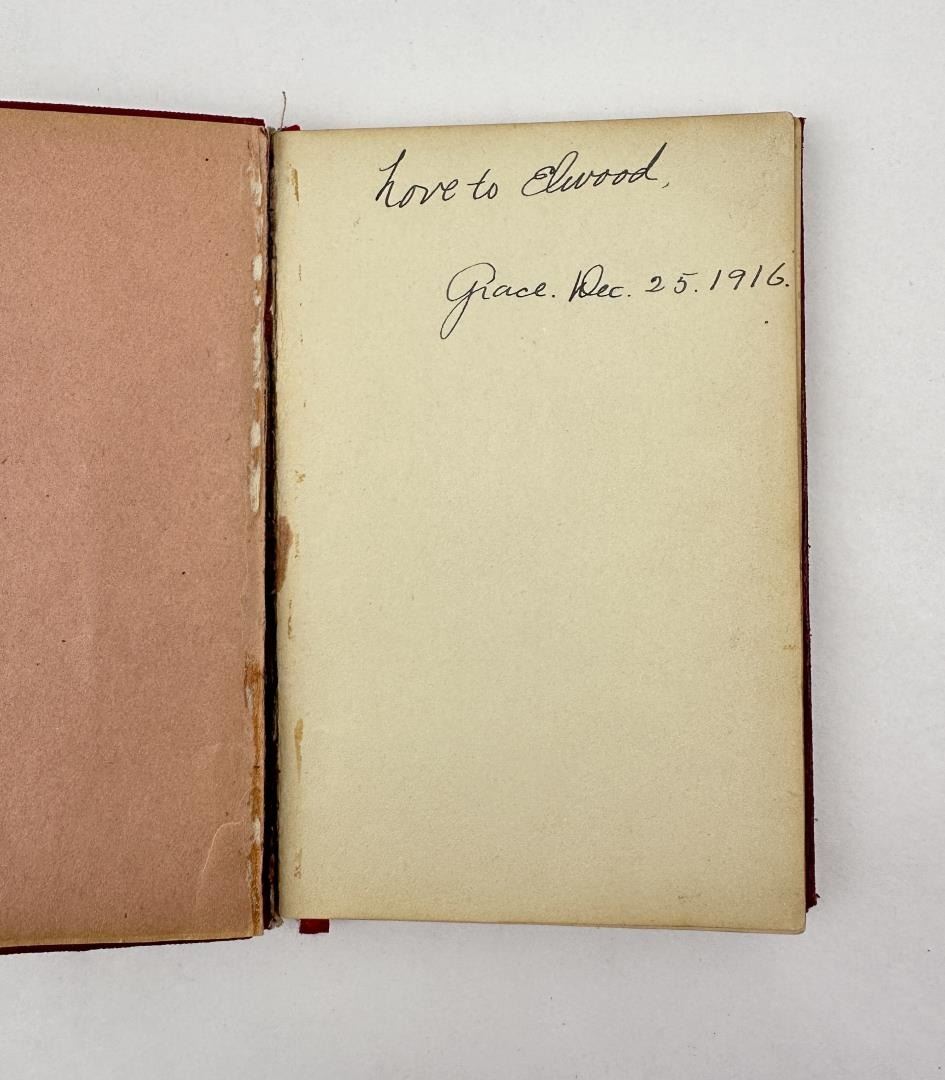 Love to Elwood,
Grace. Dec. 25. 1916.